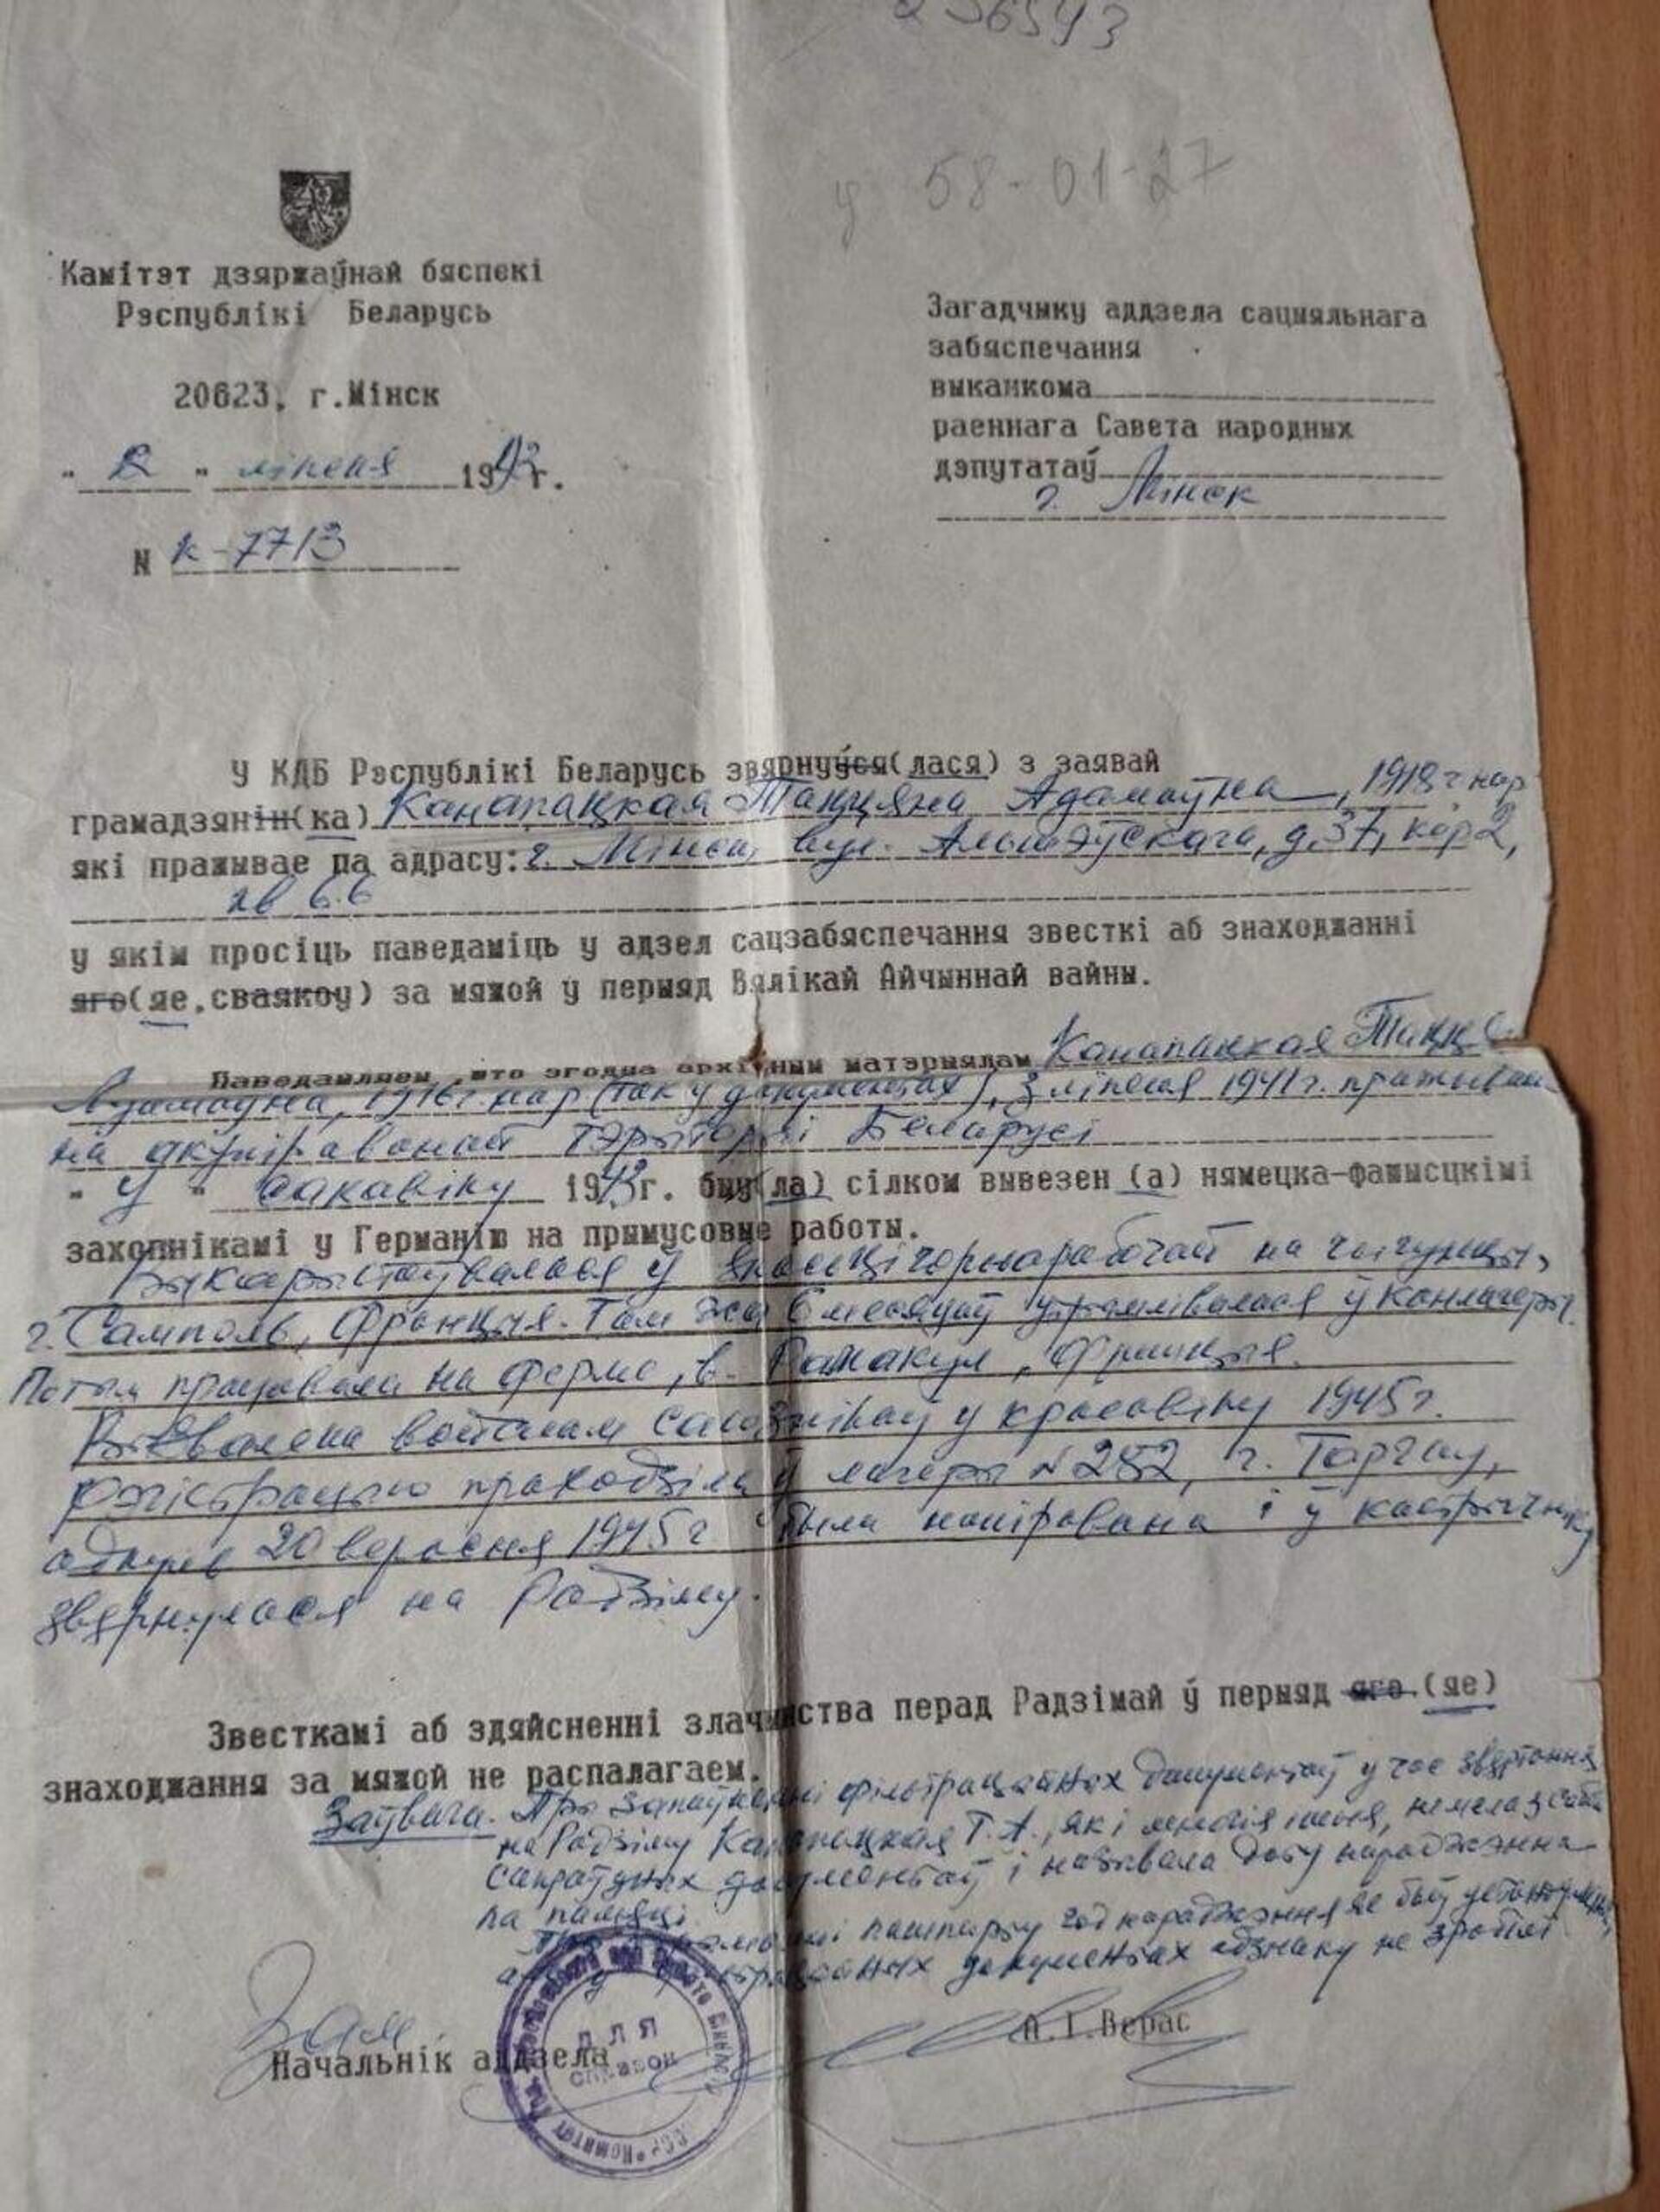 58-01-27
Камітэт дзяржаўнай бяспекі
Рэспублікі Беларусь
20623, г.Мінск
" 2 " ліпеня 1993г.
N К-7713
Загадчыку аддзела сацыяльнага
забяспечання
выканкома
раеннага Савета народных
дэпутатаў
г. Мінск
У КДБ Рэспублікі Беларусь звярнуўся(лася) з заявай
грамадзянін(ка) Канапацкая Таццяна Адамаўна, 1918 г нар
які пражывае па адрасу: г. Мінск, вул. Альшэўскага, д.37, кор 2,
кв 66
у якім просіць паведаміць у адзел сацзабяспечання звесткі аб знаходжанні
яго(яе,сваякоу) за мяжой у перыяд Вялікай Айчыннай вайны.
Паведамляем, што згодна архіўным матэрыялам Канапацкая Тацц
Адамаўна, 1916 г. нар (так у дакументах), з ліпеня 1941 г. пражывала
на акупіраванай тэрыторыі Беларусі
" у " сакавіку 1943г. быў(ла) сілком вывезен (а) нямецка-фашысцкімі
захопнікамі у Германію на прымусовые работы.
Выкарыстоўвалася ў якасці чорнарабочай на чыгунцы,
г. Самполь, Францыя. Там жа 6 месяцаў утрымлівалася ў канлагеры.
Потым працавала на ферме, в. , Францыя.
Вызвалена войскам саюзнікаў у красавіку 1945 г.
Рэгістрацыю праходзіла ў лагеры N 282, г. Торгау,
адкуль 20 верасня 1945 г. была накіравана і ў кастрычніку
звярнулася на Радзіму.
Звесткамі аб здяйсненні злачынства перад Радзімай ў перыяд яго.(яе)
знаходжання за мяжой не распалагаем.
Заўвага. Пры запаўненні фільтрацыйных дакументаў у час звяртання
на Радзіму Канапацкая Т.А., як і многія іншыя, не мела з сабой
сапраўдных дакументаў і называла дату нараджэння
па памяці.
пашпарту год нараджэння яе быў устаноўлены,
а ў фільтрацыйных дакументах адзнаку не зрабілі
Зам
Начальнік аддзела
А.І.Верас
ДЛЯ
СПРАВОК